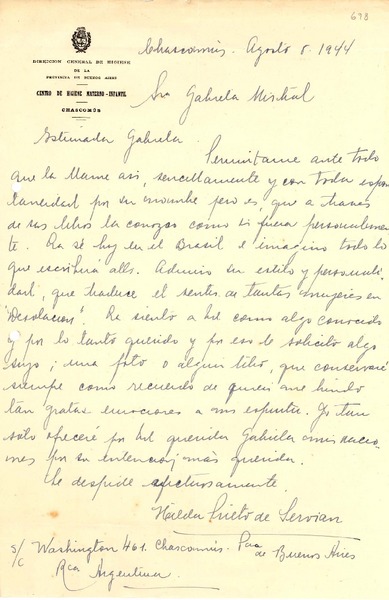 693
Chascomús. Agosto 5. 1944
DIRECCION GENERAL DE HIGIENE
DE LA
PROVINCIA DE BUENOS AIRES
CENTRO DE HIGIENE MATERNO-INFANTIL
CHASCOMÚS
Sra Gabriela Mistral
Estimada Gabriela.
Permítame ante todo
que la llame así, sencillamente y con toda espon
taneidad por su nombre pero es, que a traves
de sus libros la conozco como si fuera personalmen
te. La sé hoy en el Brasil e imagino todo lo
que escribirá allí. Admiro su estilo y personali
dad, que traduce el sentir de tantas mujeres en
"Desolación". La siento a Ud como algo conocido
y por lo tanto querido y por eso le solicito algo
suyo; una foto o algun libro, que conservaré
siempre como recuerdo de quien me brindo
tan gratas emociones a mi espiritu. Yo tan
solo ofreceré por Ud querida Gabriela mis oracio
nes por su intencion más querida.
Se despide afectuosamente.
Nalda Prieto de Servian
S/C Washington 461. Chascomús. Pcia de Buenos Aires
Rca Argentina.